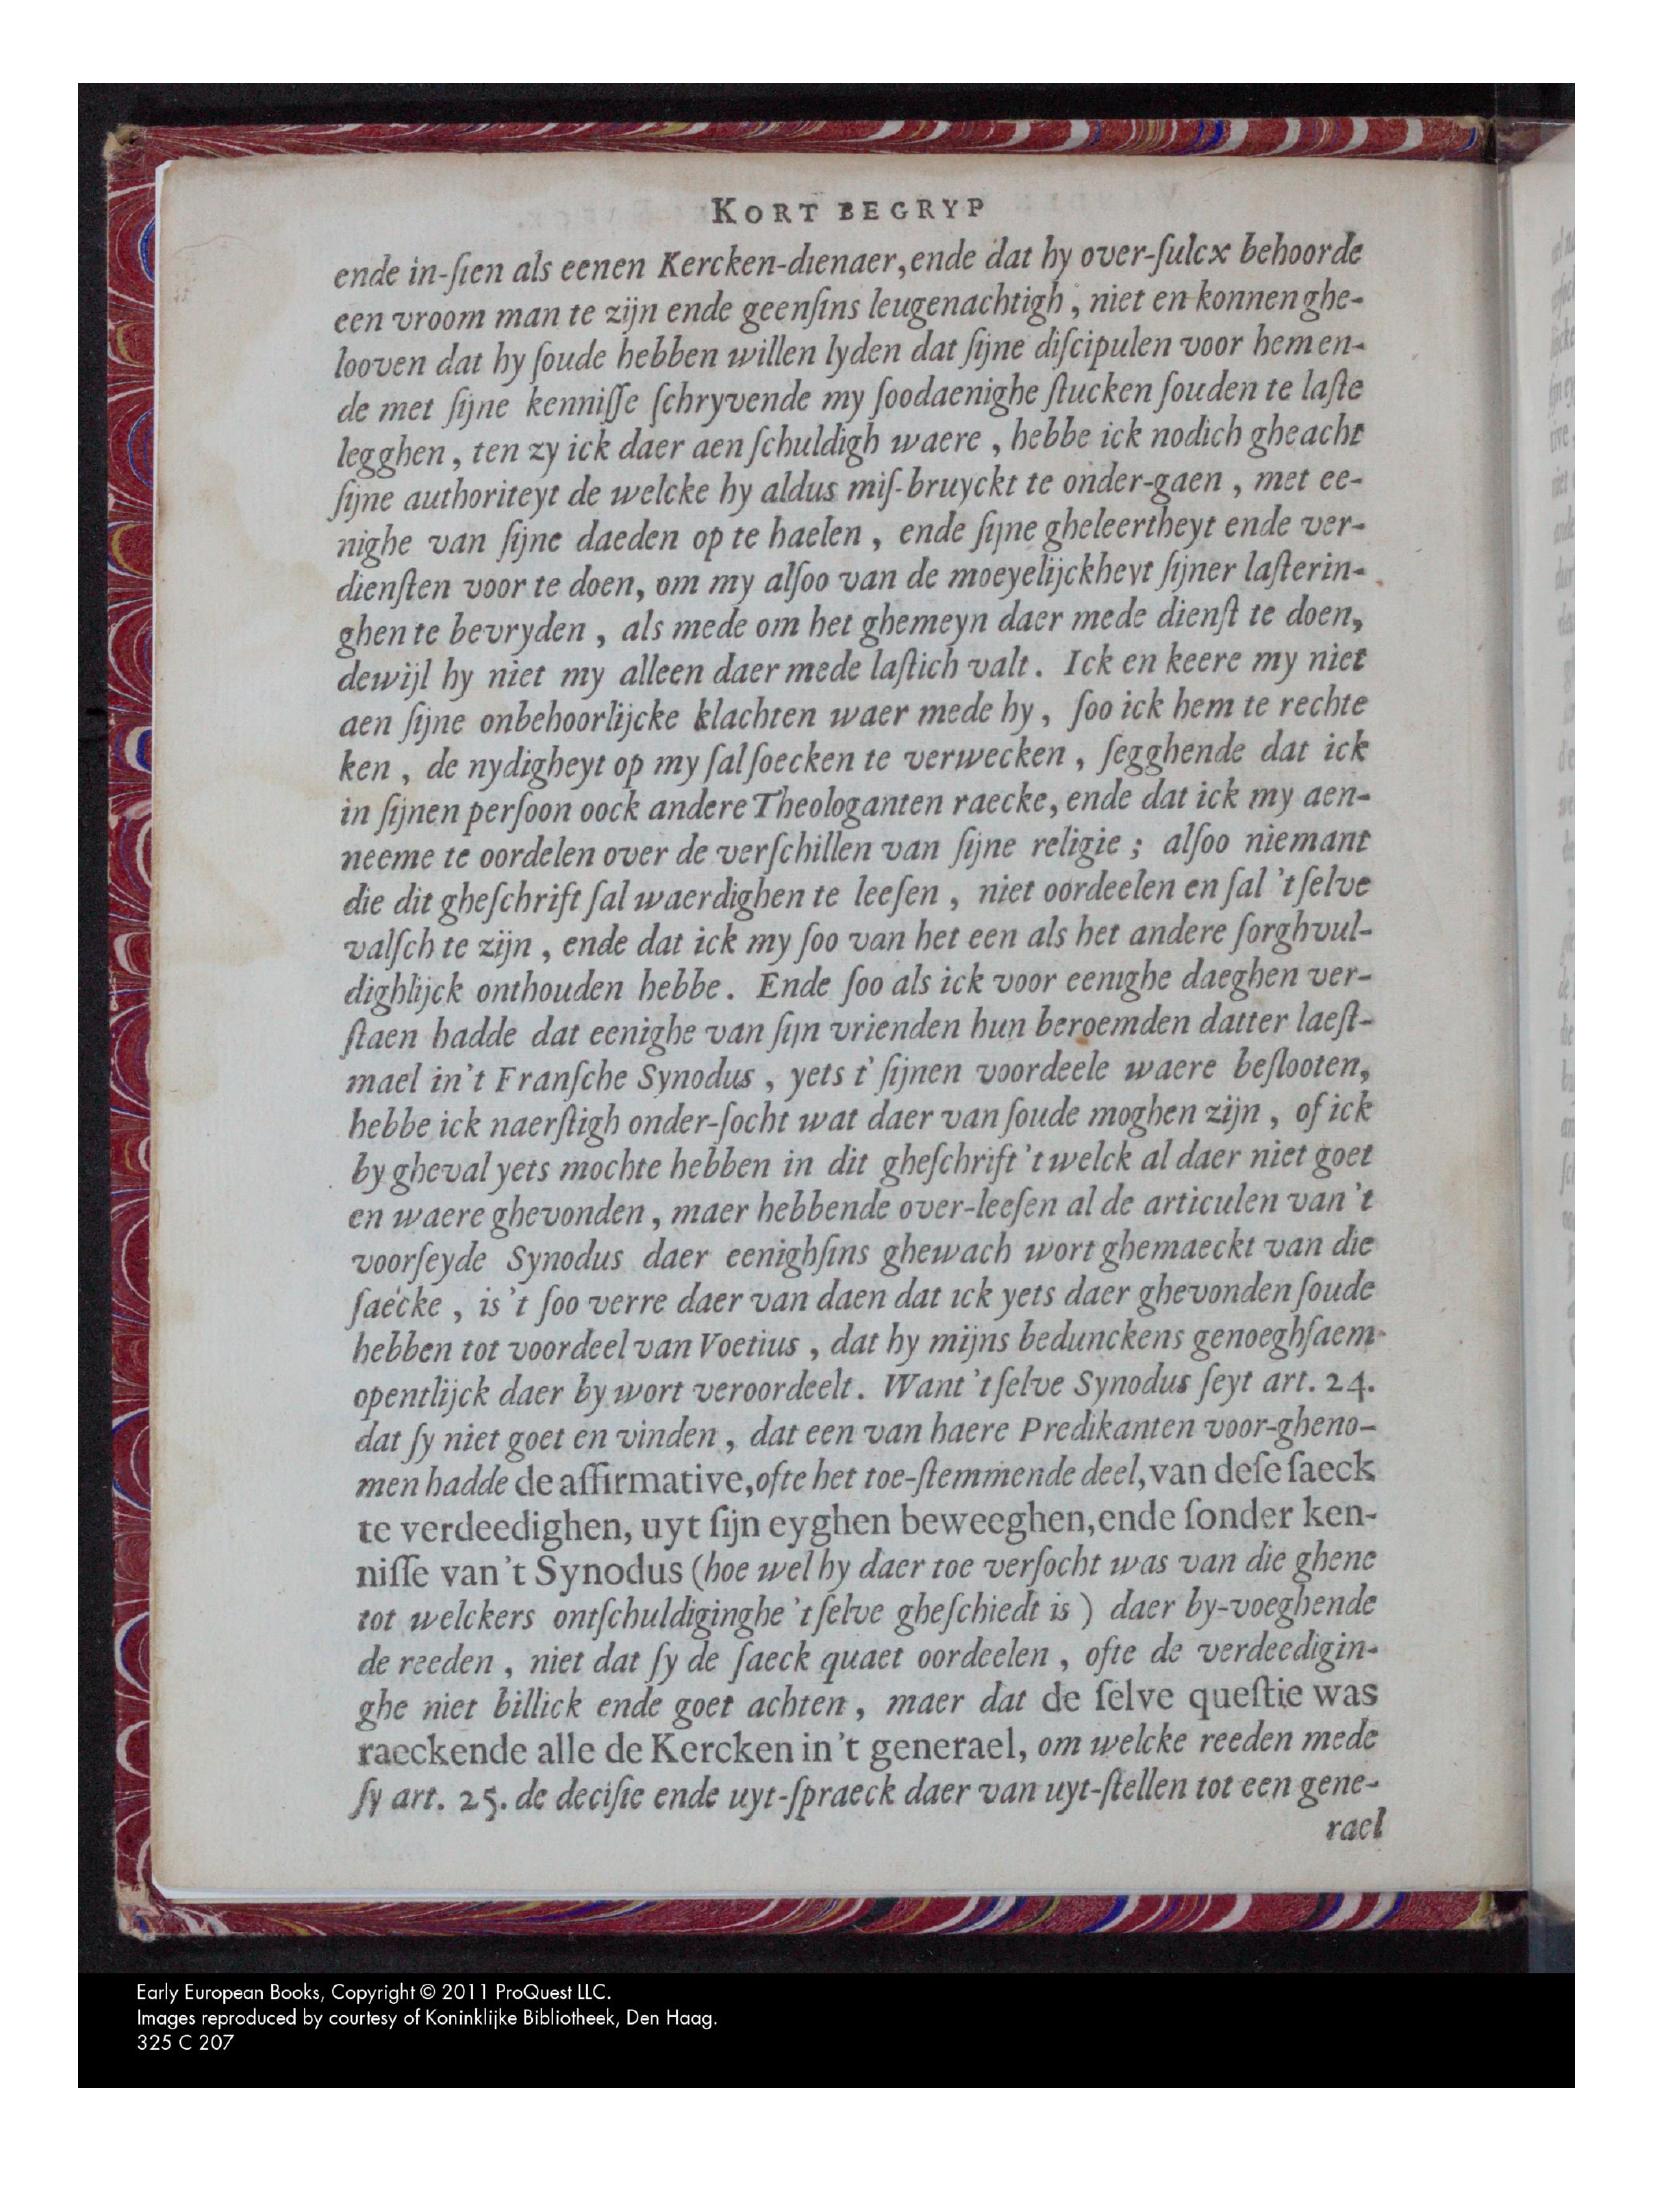 KORT BEGRYP
ende in-ſien als eenen Kercken-dienaer, ende dat hy over-ſulcx behoorde
een vroom man te zijn ende geenſins leugenachtigh, niet en konnen ghe-
looven dat hy ſoude hebben willen lyden dat ſijne diſcipulen voor hem en-
de met ſijne kenniſſe ſchryvende my ſoodaenighe ſtucken ſouden te laſte
legghen, ten zy ick daer aen ſchuldigh waere, hebbe ick nodich gheacht
ſijne authoriteyt de welcke hy aldus miſ-bruyckt te onder-gaen, met ee-
nighe van ſijne daeden op te haelen, ende ſijne gheleertheyt ende ver-
dienſten voor te doen, om my alſoo van de moeyelijckheyt ſijner laſterin-
ghen te bevryden, als mede om het ghemeyn daer mede dienſt te doen,
dewijl hy niet my alleen daer mede laſtich valt. Ick en keere my niet
aen ſijne onbehoorlijcke klachten waer mede hy, ſoo ick hem te rechte
ken, de nydigheyt op my ſal ſoecken te verwecken, ſegghende dat ick
in ſijnen perſoon oock andere Theologanten raecke, ende dat ick my aen-
neeme te oordelen over de verſchillen van ſijne religie; alſoo niemant
die dit gheſchrift ſal waerdighen te leeſen, niet oordeelen en ſal 't ſelve
valſch te zijn, ende dat ick my ſoo van het een als het andere ſorghvul-
dighlijck onthouden hebbe. Ende ſoo als ick voor eenighe daeghen ver-
ſtaen hadde dat eenighe van ſijn vrienden hun beroemden datter laeſt-
mael in't Franſche Synodus, yets t' ſijnen voordeele waere beſlooten,
hebbe ick naerſtigh onder-ſocht wat daer van ſoude moghen zijn, of ick
by gheval yets mochte hebben in dit gheſchrift 't welck al daer niet goet
en waere ghevonden, maer hebbende over-leeſen al de articulen van 't
voorſeyde Synodus daer eenighſins ghewach wort ghemaeckt van die
ſaecke, is 't ſoo verre daer van daen dat ick yets daer ghevonden ſoude
hebben tot voordeel van Voetius, dat hy mijns bedunckens genoeghſaem
opentlijck daer by wort veroordeelt. Want 't ſelve Synodus ſeyt art. 24.
dat ſy niet goet en vinden, dat een van haere Predikanten voor-gheno-
men hadde de affirmative, ofte het toe-ſtemmende deel, van deſe ſaeck
te verdeedighen, uyt ſijn eyghen beweeghen, ende ſonder ken-
niſſe van 't Synodus (hoe wel hy daer toe verſocht was van die ghene
tot welckers ontſchuldiginghe 't ſelve gheſchiedt is) daer by-voeghende
de reeden, niet dat ſy de ſaeck quaet oordeelen, ofte de verdeedigin-
ghe niet billick ende goet achten, maer dat de ſelve queſtie was
raeckende alle de Kercken in't generael, om welcke reeden mede
ſy art. 25. de deciſie ende uyt-ſpraeck daer van uyt-ſtellen tot een gene-
rael
Early European Books, Copyright © 2011 ProQuest LLC.
Images reproduced by courtesy of Koninklijke Bibliotheek, Den Haag.
325 C 207